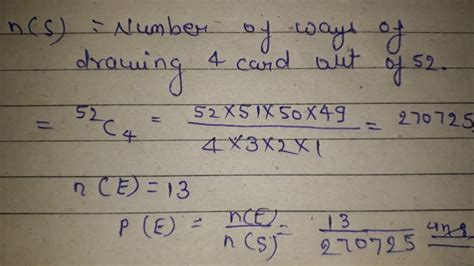 n(S) = Number of ways of
drawing 4 card out of 52.
= ⁵²C₄ = 52×51×50×49 / 4×3×2×1 = 270725
n(E) = 13
P(E) = n(E) / n(S) = 13 / 270725 ans